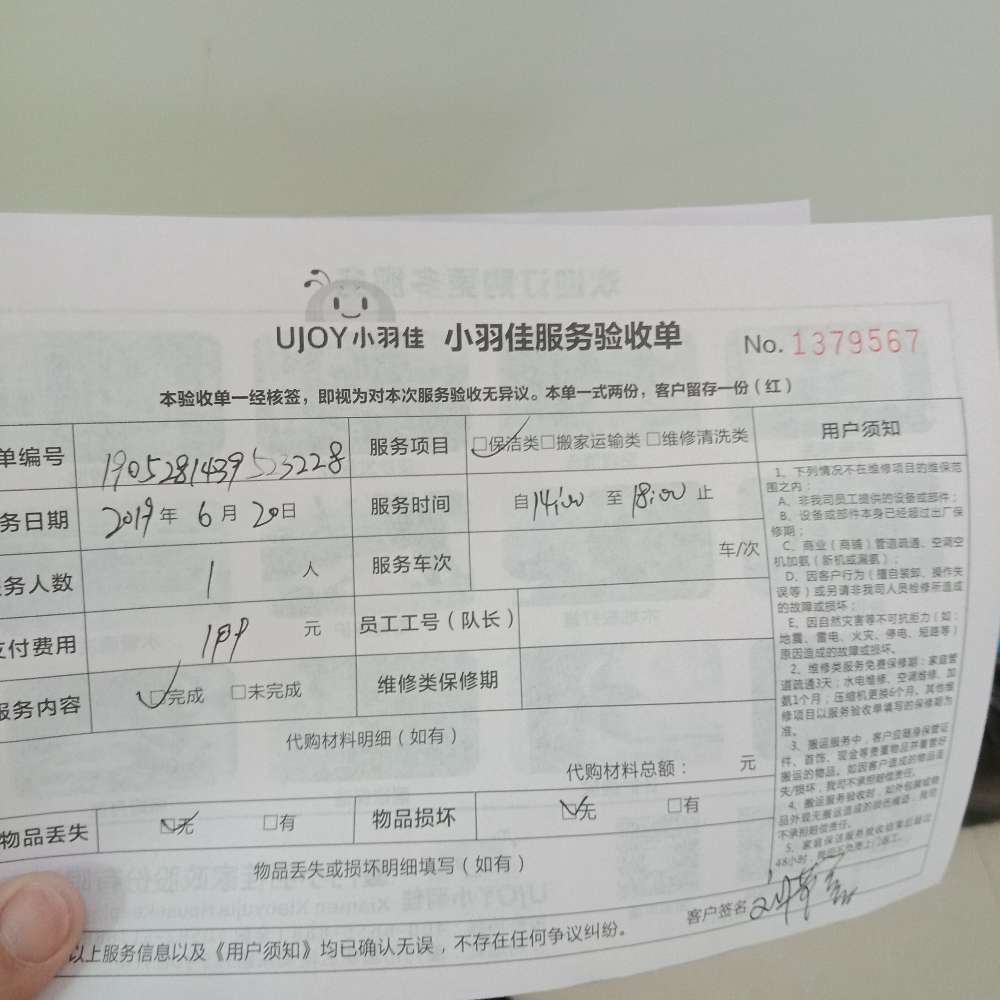 UJOY小羽佳 小羽佳服务验收单 No. 1379567
本验收单一经核签，即视为对本次服务验收无异议。本单一式两份，客户留存一份（红）
单编号 190528143952​3228 服务项目 ☑保洁类□搬家运输类□维修清洗类
务日期 2019年 6月 20日 服务时间 自14:00 至 18:00 止
务人数 1 人 服务车次 车/次
支付费用 元 员工工号（队长）
服务内容 ☑完成 □未完成 维修类保修期
代购材料明细（如有）
代购材料总额： 元
物品丢失 ☑无 □有 物品损坏 ☑无 □有
物品丢失或损坏明细填写（如有）
客户签名
以上服务信息以及《用户须知》均已确认无误，不存在任何争议纠纷。
用户须知
1、下列情况不在维修项目的维保范
围之内：
A、非我司员工提供的设备或部件；
B、设备或部件本身已经超过出厂保
修期；
C、商业（商铺）管道疏通、空调空
机加氨（新机或漏氨）；
D、因客户行为（擅自装卸、操作失
误等）或另请非我司人员检修所造成
的故障或损坏；
E、因自然灾害等不可抗拒力（如：
地震、雷电、火灾、停电、短路等）
原因造成的故障或损坏。
2、维修类服务免费保修期：家庭管
道疏通3天；水电维修、空调维修、加
氨1个月；压缩机更换6个月。其他维
修项目以服务验收单填写的保修期为
准。
3、搬运服务中，客户应随身保管证
件、首饰、现金等贵重物品并看管好
搬运的物品。如因客户造成的物品丢
失/损坏，我司不承担赔偿责任。
4、搬运服务验收时，如外包装或物
品外观无搬运造成的损伤痕迹，我司
不承担赔偿责任。
5、家庭保洁服务验收结束后超过
48小时，